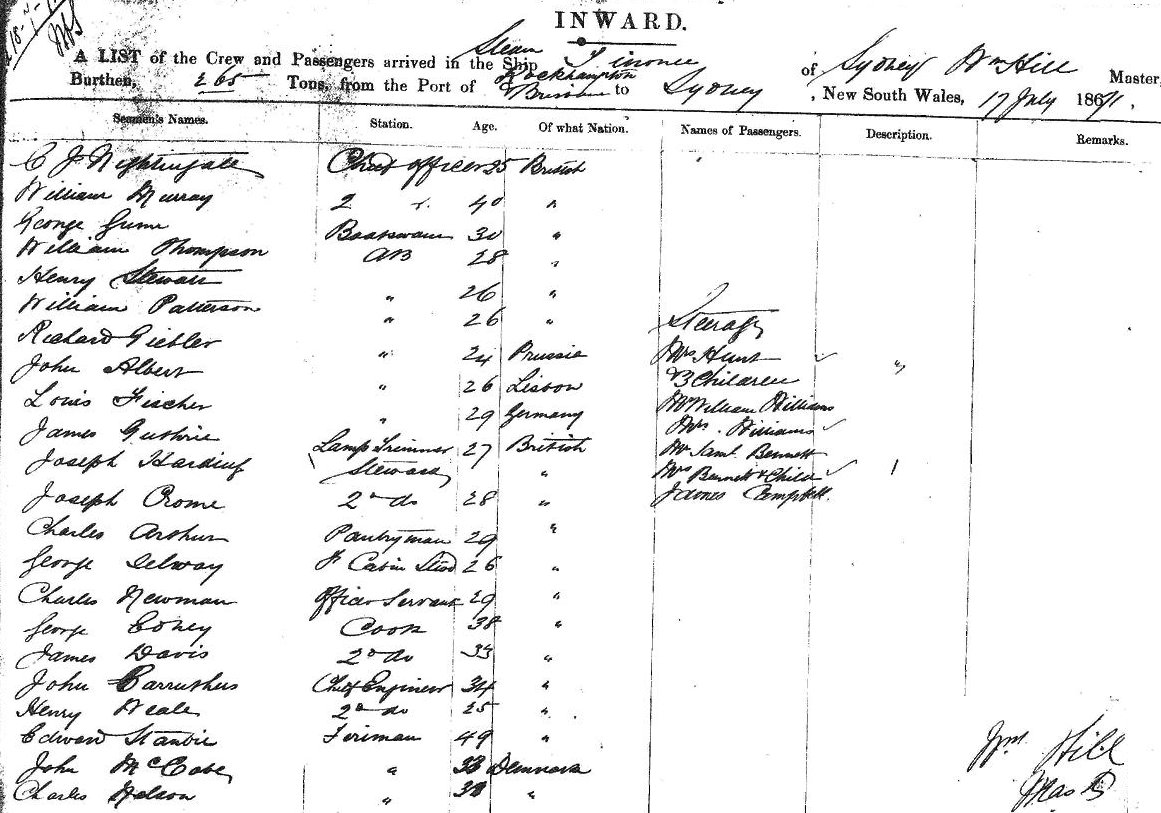 INWARD.
A LIST of the Crew and Passengers arrived in the Ship Steam Tinonee of Sydney Wm Hill Master
Burthen, 265 Tons, from the Port of Rockhampton Brisbane to Sydney, New South Wales, 17 July 1871.
Seamen's Names. Station. Age. Of what Nation. Names of Passengers. Description. Remarks.
C J Nightingale Chief Officer 35 British
William Murray 2 " 40 "
George 30 " Boatswain
William Thompson AB 28 "
Henry Stewart " 26 "
William Patterson " 26 " Steerage
Richard Giebler " 24 Prussia Mrs Hunt "
John Albert " 26 Lisbon & 3 Children
Louis Fischer " 29 Germany Mr William Williams
James Guthrie Lamp Trimmer 27 British Mrs. Williams
Joseph Harding Steward " Mr Saml Bennett
Mrs Bennett & Child 1
Joseph Crome 2nd do 28 " James Campbell.
Charles Arthur Pantryman 29 "
George Selway F Cabin Stwd 26 "
Charles Newman Officer Servant 29 "
George Coney Cook 38 "
James Davis 2nd do 33 "
John Carruthers Chief Engineer 34 "
Henry Neale 2nd do 25 "
Edward Fireman 49 "
John McCabe " 33 Denmark
Charles Nelson " "
Wm Hill
Master